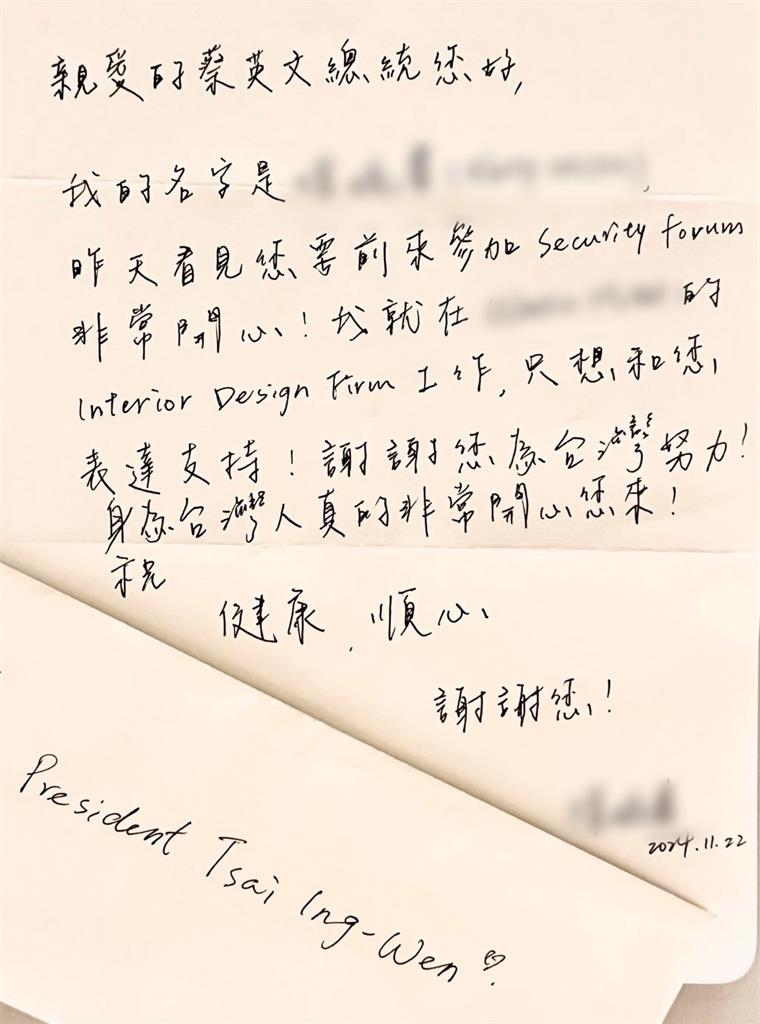 親愛的蔡英文總統您好,
我的名字是
昨天看見您要前來參加 Security Forum
非常開心!我就在 的
Interior Design Firm 工作,只想和您
表達支持!謝謝您為台灣努力!
身為台灣人真的非常開心您來!
祝
健康,順心
謝謝您!
2024.11.22
President Tsai Ing-Wen